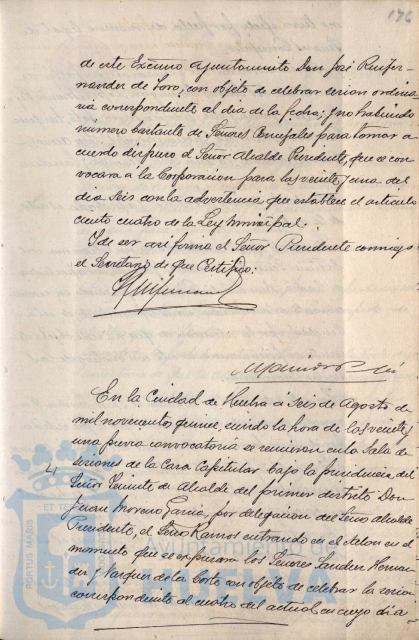 176
de este Excmo Ayuntamiento Don José Ruifer-
nandez de Toro, con objeto de celebrar sesion ordina
ria correspondiente al dia de la fecha; y no habiendo
número bastante de Señores Concejales para tomar a
cuerdo dispuso el Señor Alcalde Presidente, que se con
vocara á la Corporación para las veinte y una del
dia seis con la advertencia que establece el articulo
ciento cuatro de la Ley municipal.
Y de ser asi firma el Señor Presidente conmigo
el Secretario de que Certifico:
En la Ciudad de Huelva á seis de Agosto de
mil novecientos quince, siendo la hora de las veinte y
una previa convocatoria se reunieron en la Sala de
sesiones de la Casa Capitular bajo la presidencia del
Señor Teniente de Alcalde del primer distrito Don
Juan Moreno Garcia, por delegacion del Señor Alcalde
Presidente, el Señor Ramos entrando en el salon en el
momento que se expresara los Señores Sanchez Hernan
dez y Vazquez de la Corte con objeto de celebrar la sesion
correspondiente al cuatro del actual en cuyo dia
PORTUS MARIS
ET TE
Ayuntamiento de